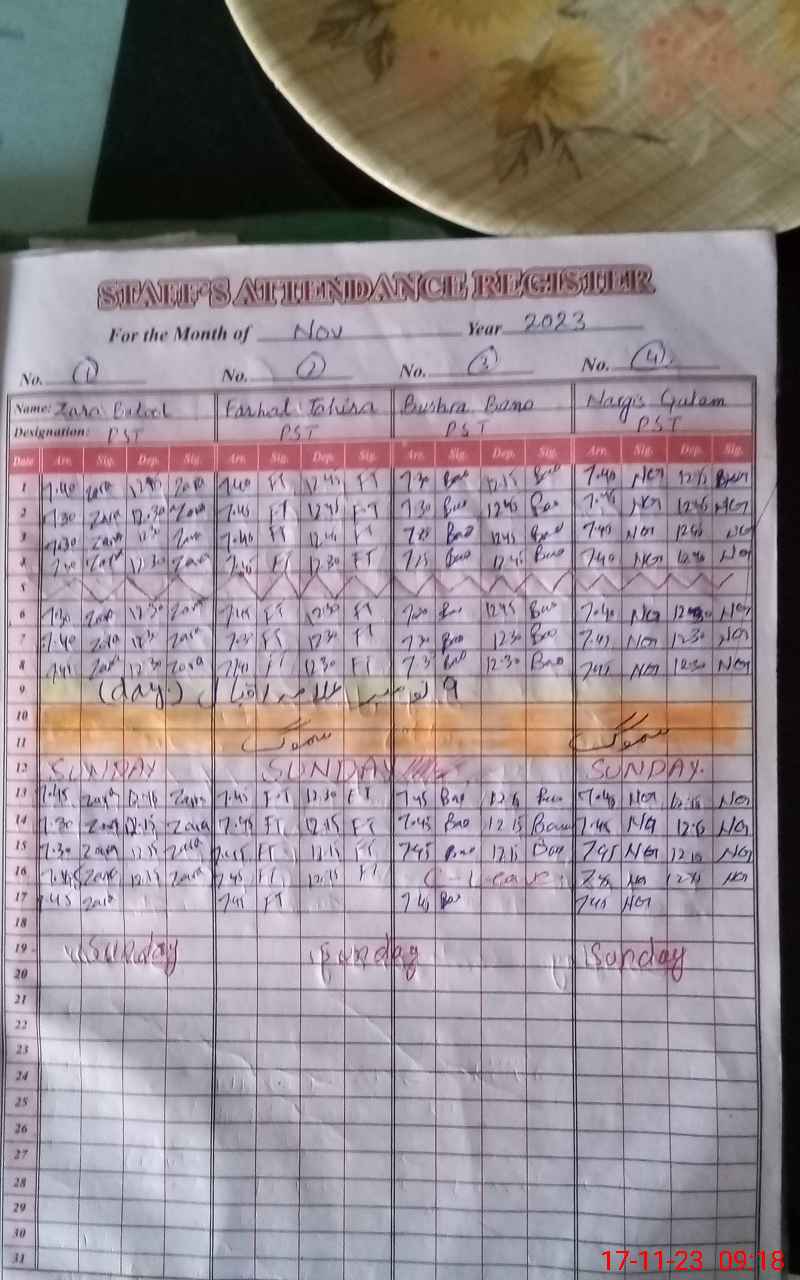 STAFF'S ATTENDANCE REGISTER
For the Month of Nov Year 2023
No. 1 No. 2 No. 3 No. 4
Name: Zara Batool Farhat Tahira Bushra Bano Nargis Gulam
Designation: PST PST PST PST
Date Arr. Sig. Dep. Sig. Arr. Sig. Dep. Sig. Arr. Sig. Dep. Sig. Arr. Sig. Dep. Sig.
1 7.40 Zara Zara 7.40 FT 12.45 FT 7.30 Bao 12.15 7.40 NG
2 7.30 Zara 12.30 Zara 7.45 FT 12.45 FT 7.30 Bao 12.45 Bao 7.45 NG 12.45 NG
3 7.30 Zara Zara 7.40 FT FT 7.25 Bao 12.45 Bao 7.45 NG 12.45 NG
4 Zara 12.30 Zara FT 12.30 FT 7.25 Bao 12.45 Bao 7.40 NG NG
5
6 7.30 Zara 12.30 Zara 7.45 FT 12.30 FT 12.45 Bao 7.40 NG NG
7 7.40 Zara Zara FT 12.30 FT 7.30 Bao 12.30 Bao 7.45 NG 12.30 NG
8 7.45 Zara 12.30 Zara 7.45 FT 12.30 FT Bao 12.30 Bao 7.45 NG 12.30 NG
9 9 نومبر علامہ اقبال (day)
10
11 سموگ سموگ
12 SUNDAY SUNDAY SUNDAY.
13 7.45 Zara 12.15 Zara 7.45 FT 12.30 FT 7.45 Bao 12.15 Bao 7.45 NG 12.15 NG
14 7.30 Zara 12.15 Zara 7.45 FT 12.15 FT 7.45 Bao 12.15 Bao 7.45 NG 12.15 NG
15 7.30 Zara 12.15 Zara 7.45 FT 12.15 FT 7.45 Bao 12.15 Bao 7.45 NG 12.15 NG
16 7.45 Zara 12.15 Zara 7.45 FT 12.15 FT C-Leave 7.45 NG 12.15 NG
17 7.45 Zara 7.45 FT 7.45 Bao 7.45 NG
18
19 Sunday Sunday Sunday
20
21
22
23
24
25
26
27
28
29
30
31
17-11-23 09:18